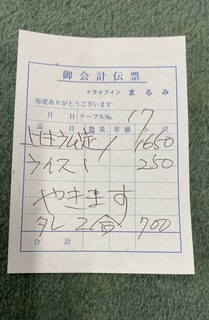 御会計伝票
ドライブイン まるみ
毎度ありがとうございます
月 日 テーブルNo. 17
品名 数量 単価 小計
上ホルモン定 1 1650
ライス 1 250
やきます
タレ 2 700
合計